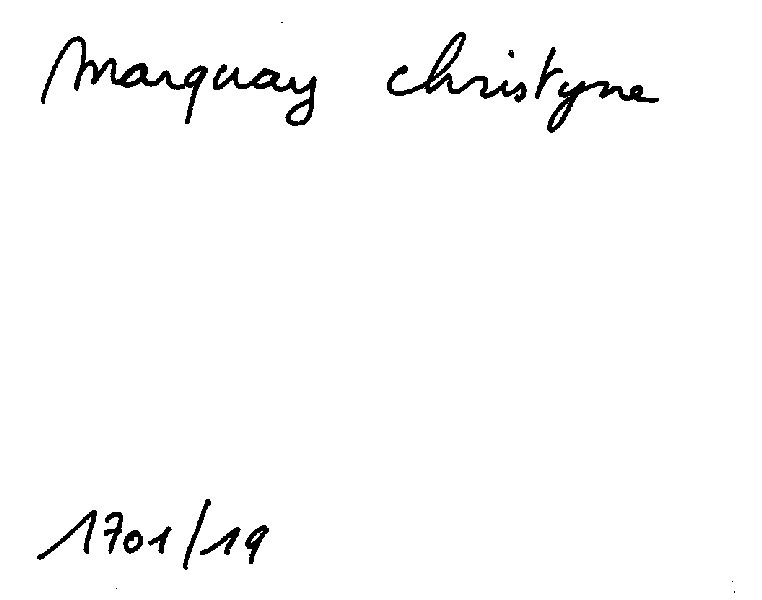 Marquay christyne
1701/19